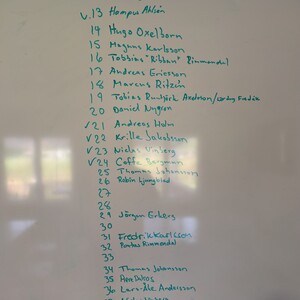 v.13 Hampus Ahlsén
14 Hugo Oxelborn
15 Magnus Karlsson
16 Tobbias "Ribban" Rimmendal
17 Andreas Ericsson
18 Marcus Ritzén
19 Tobias
20 Daniel Nygren
✓21 Andreas Holm
✓22 Krille Jakobsson
✓23 Niclas
✓24 Coffe Bergman
25 Thomas Johansson
26 Robin Ljungblad
27
28
29 Jörgen Erberg
30
31 Fredrik Karlsson
32 Pontus Rimmendal
33
34 Thomas Johansson
35
36 Lars-Åke Andersson